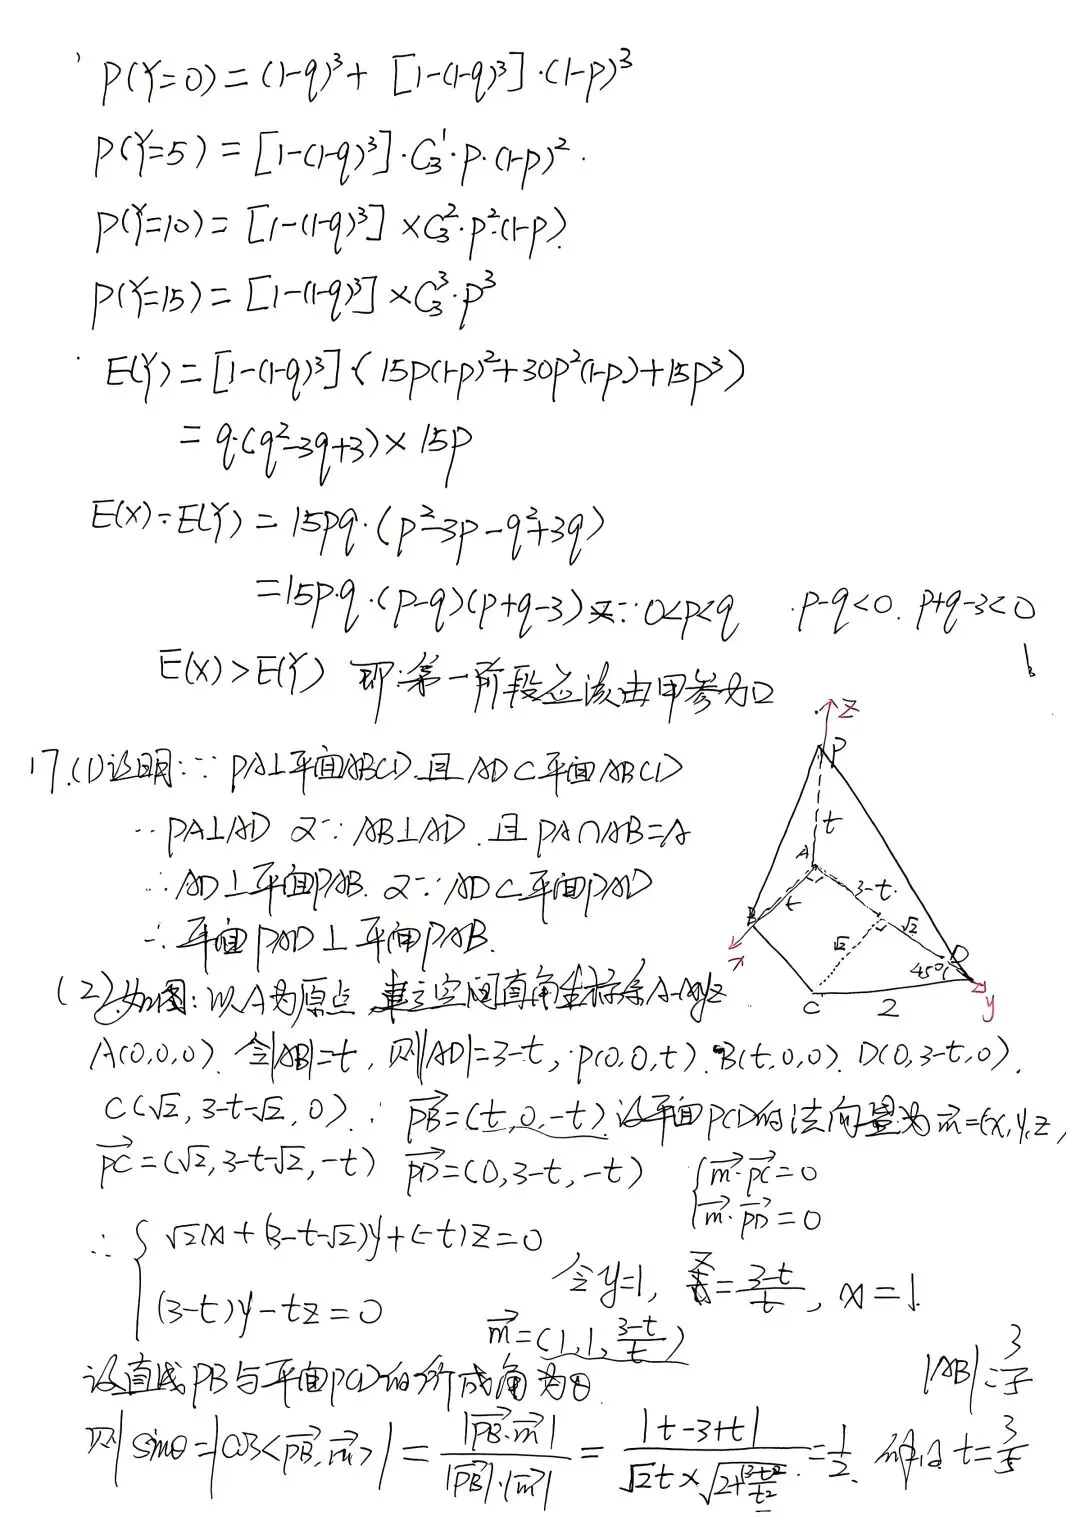 P(Y=0)=(1-q)³+[1-(1-q)³]·(1-p)³
P(Y=5)=[1-(1-q)³]·C₃¹·p·(1-p)².
P(Y=10)=[1-(1-q)³]×C₃²·p²·(1-p).
P(Y=15)=[1-(1-q)³]×C₃³·p³
E(Y)=[1-(1-q)³]·(15p(1-p)²+30p²(1-p)+15p³)
=q·(q²-3q+3)×15p
E(X)-E(Y)=15pq·(p²-3p-q²+3q)
=15p·q·(p-q)(p+q-3) 又∵0<p<q p-q<0. p+q-3<0
E(X)>E(Y) 即:第一阶段应该由甲参加
17.(1)证明:∵PA⊥平面ABCD且AD⊂平面ABCD
∴PA⊥AD 又∵AB⊥AD.且PA∩AB=A
∴AD⊥平面PAB.又∵AD⊂平面PAD
∴平面PAD⊥平面PAB.
z
P
t
A
3-t.
B
t
√2
√2
D
45°
x
C
2
y
(2)如图:以A为原点,建立空间直角坐标系A-xyz
A(0,0,0).令|AB|=t,则|AD|=3-t,P(0,0,t).B(t,0,0).D(0,3-t,0).
C(√2,3-t-√2,0).∴PB=(t,0,-t).设平面PCD的法向量为m=(x,y,z,
PC=(√2,3-t-√2,-t) PD=(0,3-t,-t) {m·PC=0
m·PD=0
∴{√2x+(3-t-√2)y+(-t)z=0
(3-t)y-tz=0
令y=1, z=3-t/t, x=1.
m=(1,1,3-t/t)
设直线PB与平面PCD的所成角为θ.
|AB|=3/5
则sinθ=|cos<PB,m>|=|PB·m|/|PB|·|m|=|t-3+t|/√2t×√2+(3-t)²/t²=1/2. 解得t=3/5